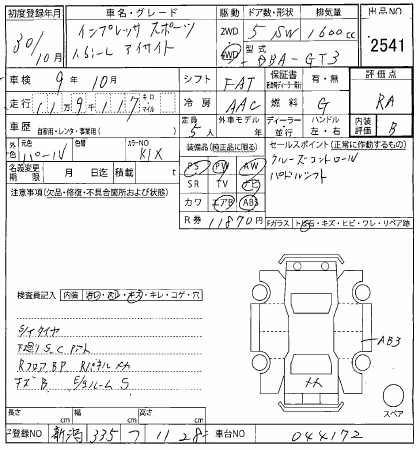 初度登録年月 車名・グレード 駆動 ドア数・形状 排気量 出品NO
30/10月 インプレッサ スポーツ 2WD 5 SW 1600cc 2541
1.6i-L アイサイト 4WD 型式 DBA-GT3
車検 9年 10月 シフト FAT 保証書 有・無 評価点
走行 11万9千117 キロ マイル 冷房 AAC 燃料 G RA
車歴 自家用・レンタ・事業用( ) 定員 5人 外車モデル 年 ディーラー 並行 ハンドル 左・右 内装評価 B
外色 元色 パール 色替 カラーNO K1X 装備品(純正品に限る) セールスポイント(正常に作動するもの)
名義変更期限 月 日迄 積載 t PS PW AW クルーズコントロール
注意事項(欠品・修復・不具合箇所および状態) SR TV ナビ パドルシフト
カワ エアB ABS
R券 11870円 Fガラス トビ石・キズ・ヒビ・ワレ・リペア跡
検査員記入 内装 汚れ・スレ・キズ・キレ・コゲ・穴
S/Iタイヤ
下廻りS.C アト
RフロアBP Rパネルメカ
キズB E/gルームS
AB3
スペア
長さ cm 幅 cm 高さ cm
登録NO 新潟 335 フ 1128 車台NO 044172